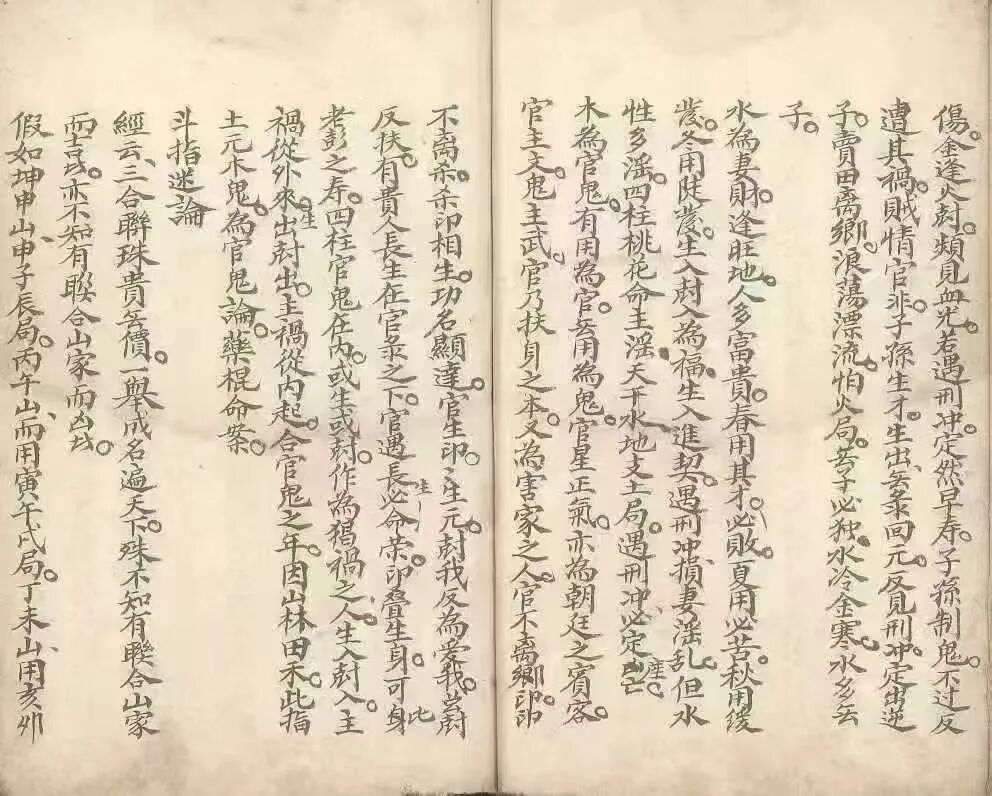 傷。金逢火尅。頻見血光。若遇刑冲。定然早寿。子孫制鬼。不过反
遭其禍。賊情官非。子孫生才。生出。无彔回元。反見刑冲。定出逆
子。賣田离鄉。浪蕩漂流。怕火局。若子必独。水冷金寒。水多无
子。
水為妻財。逢旺地。人多富貴。春用其才。必敗。夏用必苦。秋用緩
發。冬用陡發。生入尅入為福。生入進契。遇刑冲。損妻滛乱。但水
性多滛。四柱桃花。命主滛。天干水。地支土局。遇刑冲。必定産亡。
木為官鬼。有用為官。无用為鬼。官星正氣。亦為朝廷之賓客。
官主文。鬼主武。官乃扶身之本。又為害家之人。官不离鄉。印印
不离杀。杀印相生。功名顯達。官生印。印生元。尅我反為愛我。尅
反扶。有貴人長生在官彔之下。官遇長生。必命荣。印叠生身。可比
老彭之寿。四柱官鬼在内。或生或尅。作為猖禍之人。生入尅入。主
禍從外來。生出尅出。主禍從内起。合官鬼之年。因山林田禾。此指
土元木鬼。為官鬼論。藥棍命案。
斗指迷論
經云。三合聯珠貴无價。一舉成名遍天下。殊不知有聯合山家
而吉者。亦不知有聯合山家而凶者。
假如坤申山。申子辰局。丙午山。而用寅午戌局。丁未山。用亥夘